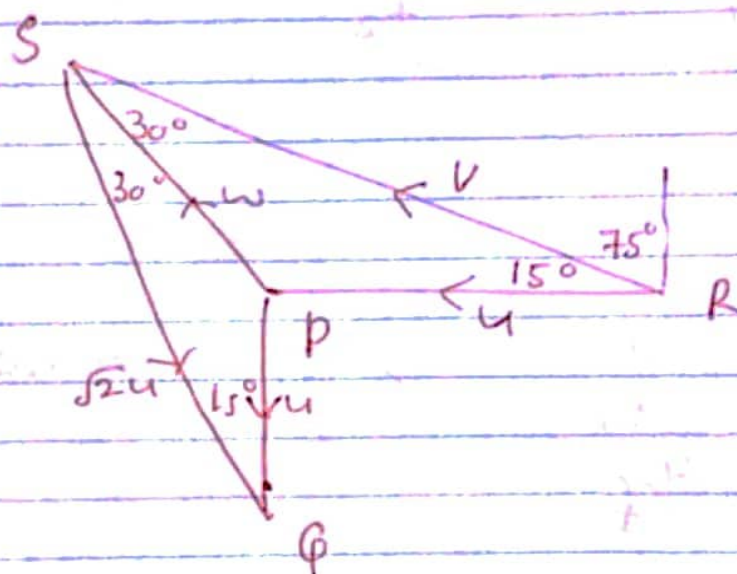 S
30°
30°
w
V
75°
15°
R
u
P
√2u
15°
u
Q